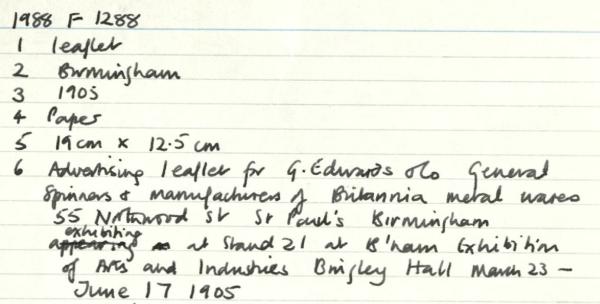 1988 F 1288
1 leaflet
2 Birmingham
3 1905
4 Paper
5 19cm x 12.5 cm
6 Advertising leaflet for G. Edwards General
Spinners & manufacturers of Britannia metal wares
55 Northwood St St Paul's Birmingham
exhibiting
appearing as at Stand 21 at B'ham Exhibition
of Arts and Industries Bingley Hall March 23 –
June 17 1905